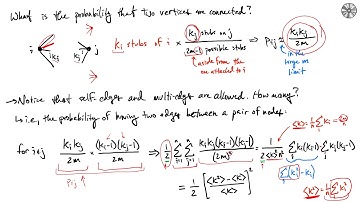 What is the probability that two vertices are connected?
i ki kj j
ki stubs of i × kj stubs on j / 2m-1 possible stubs ⇒ Pij ≃ kikj / 2m
aside from the one attached to i
in the large m limit
→ Notice that self-edges and multi-edges are allowed. How many?
→ i.e., the probability of having two edges between a pair of nodes:
for i≠j kikj / 2m × (ki-1)(kj-1) / 2m ⇒ 1/2 Σ Σ kikj(ki-1)(kj-1) / (2m)² = 1 / 2<k>²n² Σ ki(ki-1) Σ kj(kj-1)
Pij
<k> = 1/n Σ ki
= 1/2 [ <k²> - <k> / <k> ]²
Σ ki² - ki
<k²> = 1/n Σ ki²